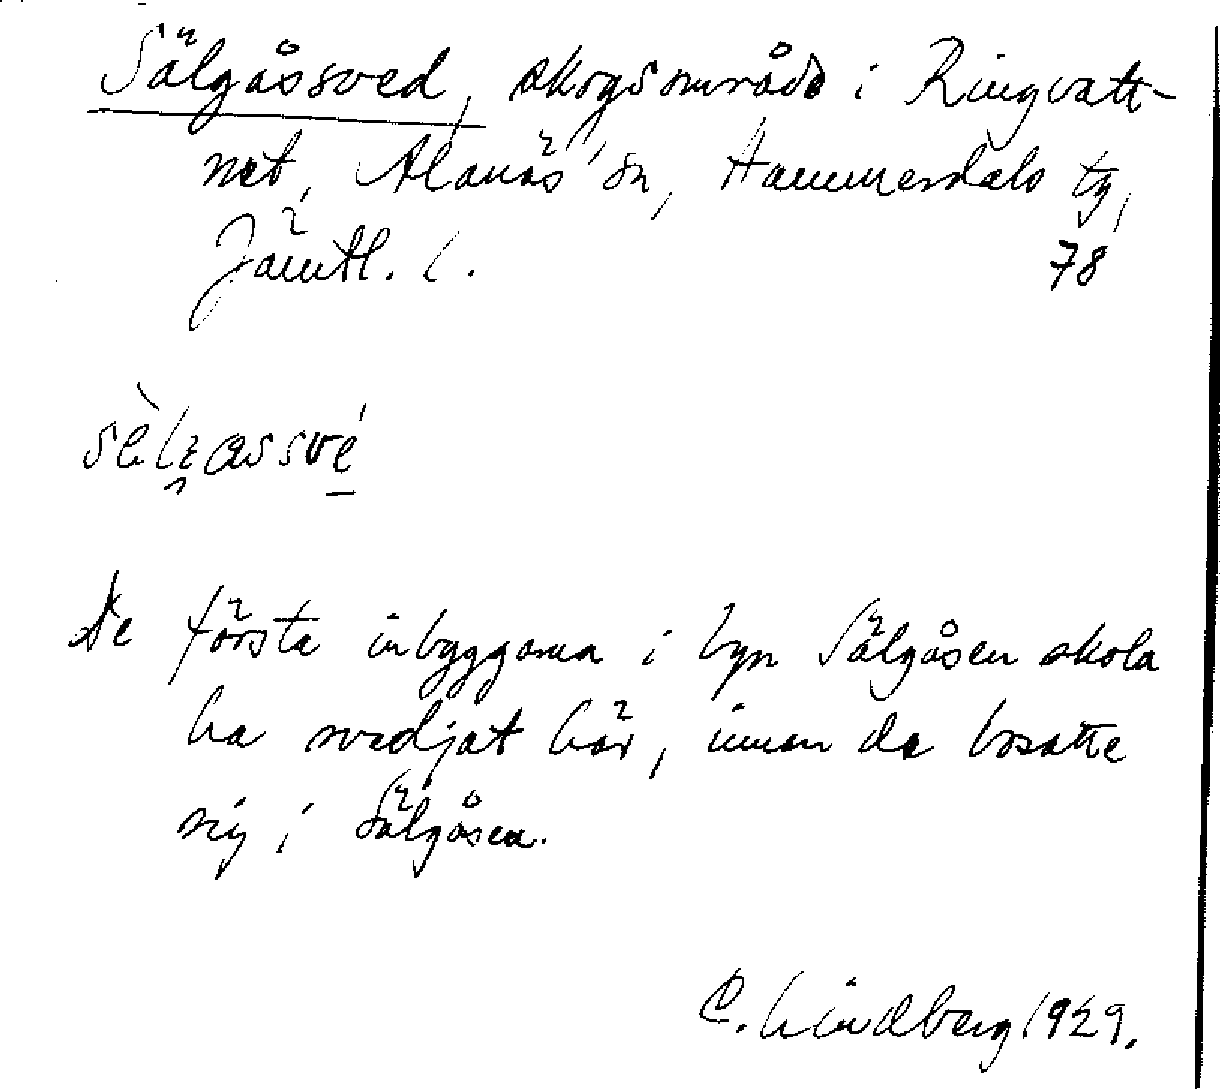 Sälgåssved, skogsområde i Ringvatt-
net, Alanäs sn, Hammerdals tg,
Jämtl. l. 78
De första inbyggarna i byn Sälgåsen skola
ha svedjat här, innan de bosatte
sig i Sälgåsen.
C. Lindberg 1929.